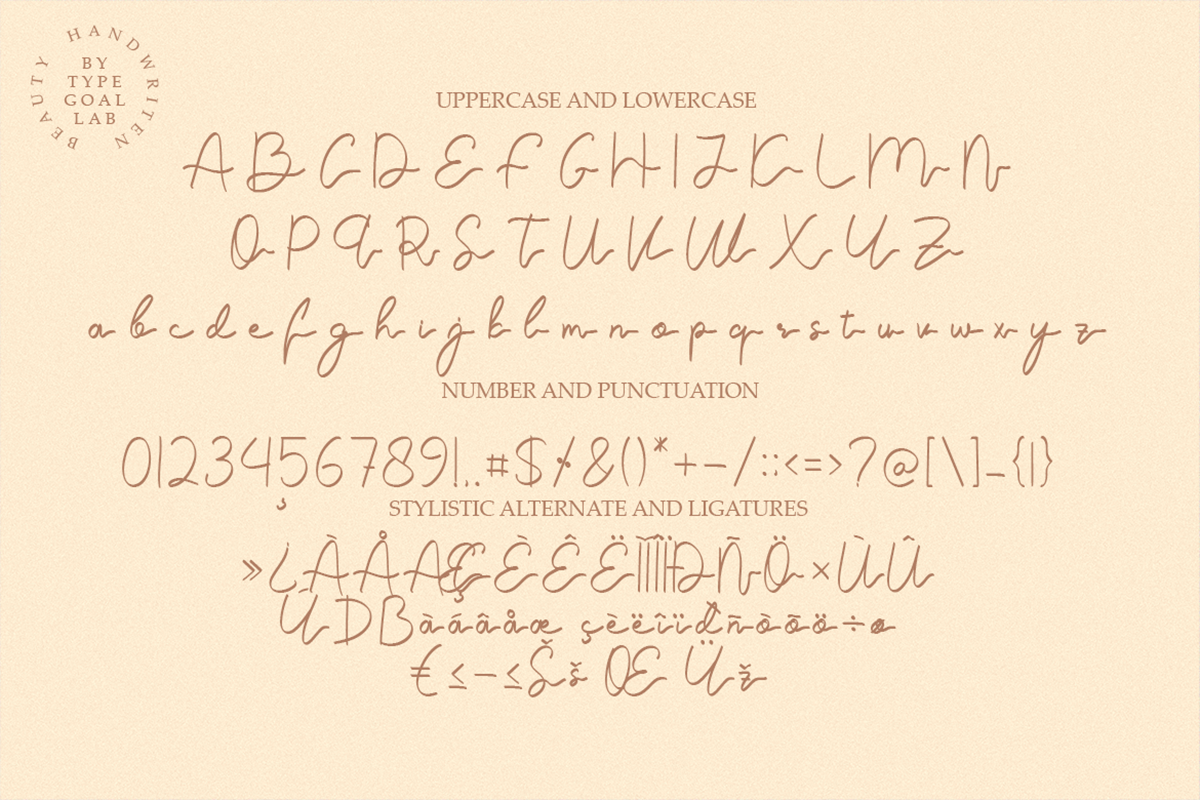 BEAUTY HANDWRITEN
BY
TYPE
GOAL
LAB
UPPERCASE AND LOWERCASE
A B C D E F G H I J K L M N
O P Q R S T U V W X Y Z
a b c d e f g h i j k l m n o p q r s t u v w x y z
NUMBER AND PUNCTUATION
0123456789!..#$%&()*+-/:;<=>?@[\]_{|}
STYLISTIC ALTERNATE AND LIGATURES
»¿ÀÅAÇÈÊËÌÍÎÏÐÑÖ×ÙÛ
ÚDBàáâåæ çèëîïðñòõö÷ø
€≤−≤Šš Œ Üž